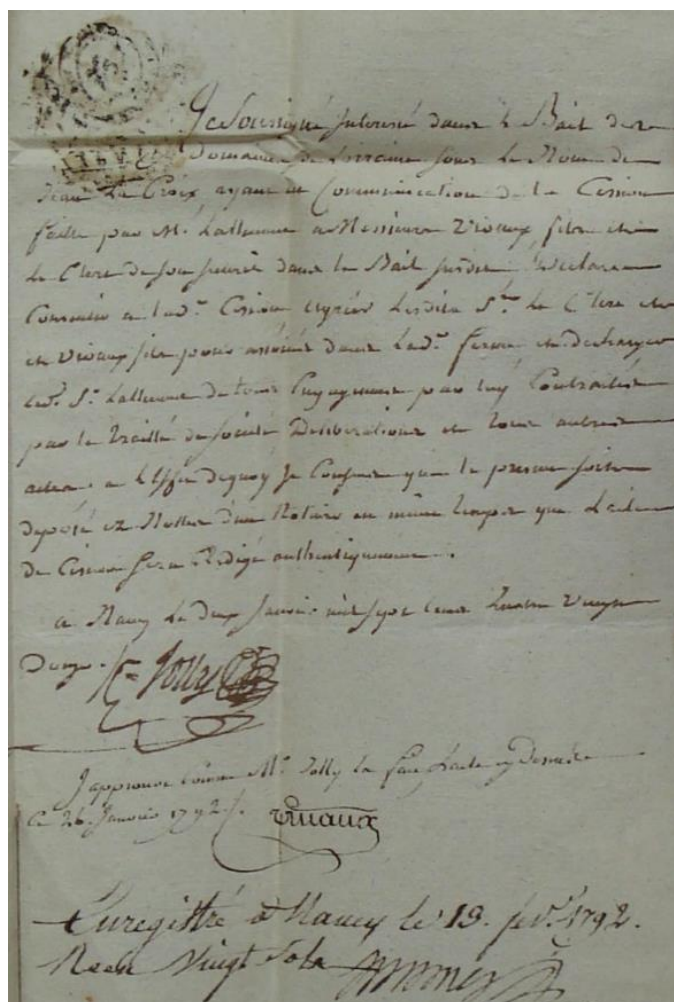 Je Soussigné Interessé dans le Bail des
Domaines de Lorraine sous le Nom de
Jean La Croix, ayant eu Communication de la Cession
faitte par M. Lallemant a Messieurs Vivaux fils et
Le Clerc de son Interêt dans le Bail susdit Declare
Consentir a lad. Cession agréer lesdits Srs. Le Clerc et
et Vivaux fils pour associés dans lad. ferme et decharger
led. Sr. Lallemant de tous Engagemens par luy Contractés
par le Traitté de société Deliberations et tous autres
actes a l'Effet de quoy Je Consens que le present soit
deposé ez Nottes d'un Notaire en même temps que L'acte
de Cession sera Redigé authentiquement.
a Nancy Le deux Janvier mil sept cent Quatre Vingt
Douze. Jolly
J'approuve comme Mr. Jolly la fait L'acte cy Dessus
Ce 26 Janvier 1792 Vivaux
Enregistré à Nancy le 13. fév. 1792.
Reçu Vingt Sols